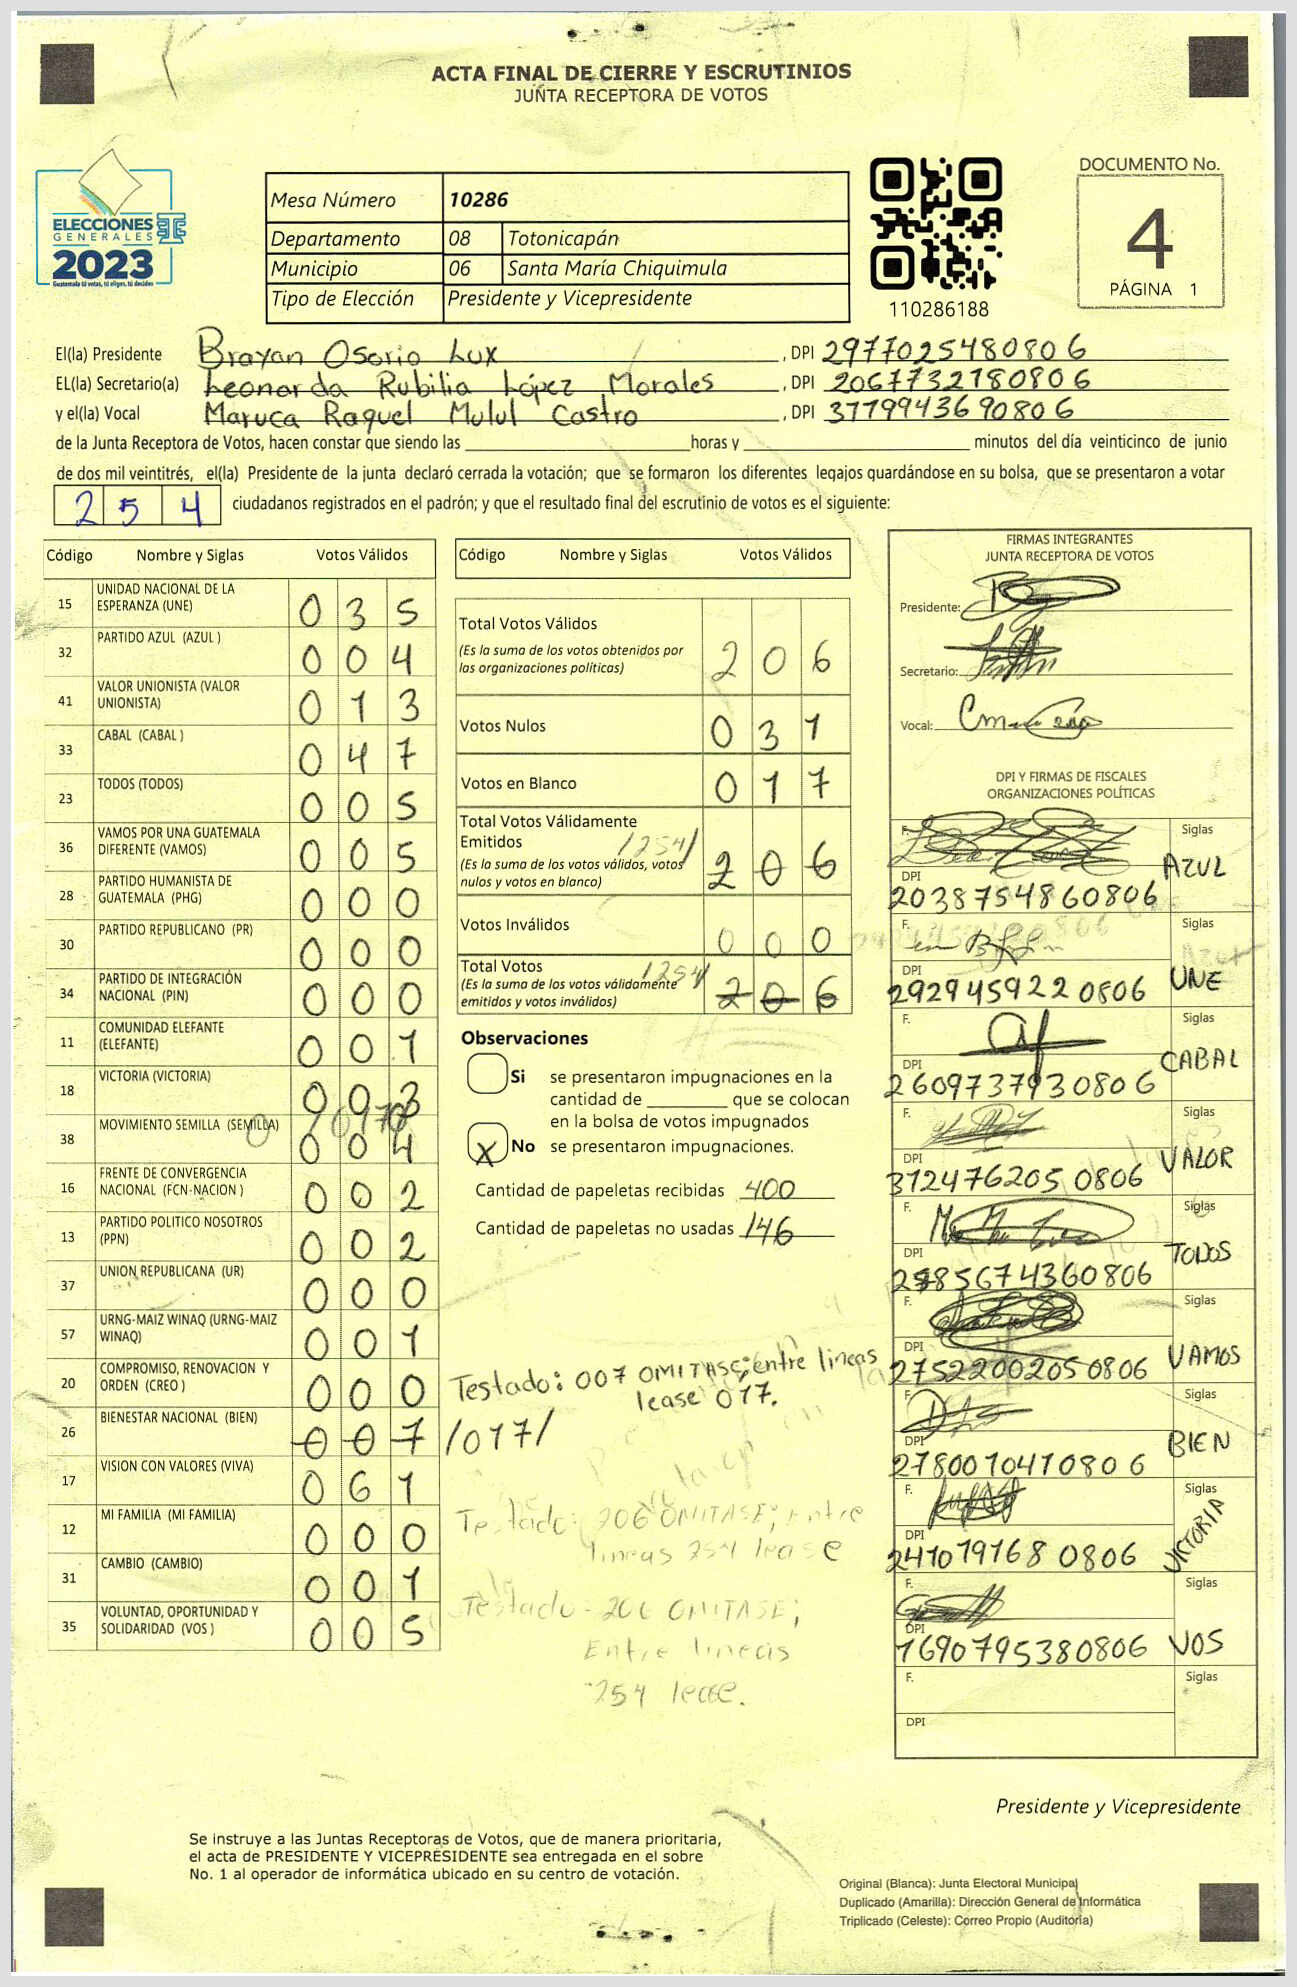 ACTA FINAL DE CIERRE Y ESCRUTINIOS
JUNTA RECEPTORA DE VOTOS
ELECCIONES
GENERALES
2023
Guatemala tú votas, tú eliges, tú decides
Mesa Número 10286
Departamento 08 Totonicapán
Municipio 06 Santa María Chiquimula
Tipo de Elección Presidente y Vicepresidente
110286188
DOCUMENTO No.
4
PÁGINA 1
El(la) Presidente Brayan Osorio Lux , DPI 2977025480806
EL(la) Secretario(a) Leonarda Rubilia López Morales , DPI 2067732180806
y el(la) Vocal Maruca Raquel Mulul Castro , DPI 3779943690806
de la Junta Receptora de Votos, hacen constar que siendo las horas y minutos del día veinticinco de junio
de dos mil veintitrés, el(la) Presidente de la junta declaró cerrada la votación; que se formaron los diferentes legajos guardándose en su bolsa, que se presentaron a votar
254 ciudadanos registrados en el padrón; y que el resultado final del escrutinio de votos es el siguiente:
Código Nombre y Siglas Votos Válidos
15 UNIDAD NACIONAL DE LA ESPERANZA (UNE) 035
32 PARTIDO AZUL (AZUL ) 004
41 VALOR UNIONISTA (VALOR UNIONISTA) 013
33 CABAL (CABAL ) 047
23 TODOS (TODOS) 005
36 VAMOS POR UNA GUATEMALA DIFERENTE (VAMOS) 005
28 PARTIDO HUMANISTA DE GUATEMALA (PHG) 000
30 PARTIDO REPUBLICANO (PR) 000
34 PARTIDO DE INTEGRACIÓN NACIONAL (PIN) 000
11 COMUNIDAD ELEFANTE (ELEFANTE) 001
18 VICTORIA (VICTORIA) 003
38 MOVIMIENTO SEMILLA (SEMILLA) 004
16 FRENTE DE CONVERGENCIA NACIONAL (FCN-NACION ) 002
13 PARTIDO POLITICO NOSOTROS (PPN) 002
37 UNION REPUBLICANA (UR) 000
57 URNG-MAIZ WINAQ (URNG-MAIZ WINAQ) 001
20 COMPROMISO, RENOVACION Y ORDEN (CREO ) 000
26 BIENESTAR NACIONAL (BIEN) 007 /017/
17 VISION CON VALORES (VIVA) 061
12 MI FAMILIA (MI FAMILIA) 000
31 CAMBIO (CAMBIO) 001
35 VOLUNTAD, OPORTUNIDAD Y SOLIDARIDAD (VOS ) 005
Código Nombre y Siglas Votos Válidos
Total Votos Válidos 206
(Es la suma de los votos obtenidos por
las organizaciones politicas)
Votos Nulos 031
Votos en Blanco 017
Total Votos Válidamente
Emitidos /254/ 206
(Es la suma de los votos válidos, votos
nulos y votos en blanco)
Votos Inválidos 000
Total Votos /254/ 206
(Es la suma de los votos válidamente
emitidos y votos inválidos)
Observaciones
Si se presentaron impugnaciones en la
cantidad de que se colocan
en la bolsa de votos impugnados
X No se presentaron impugnaciones.
Cantidad de papeletas recibidas 400
Cantidad de papeletas no usadas 146
Testado: 007 OMITASE; entre lineas
lease 017.
Testado: 206 OMITASE; Entre
lineas 254 lease
Testado- 206 OMITASE;
Entre lineas
254 lease.
FIRMAS INTEGRANTES
JUNTA RECEPTORA DE VOTOS
Presidente:
Secretario:
Vocal:
DPI Y FIRMAS DE FISCALES
ORGANIZACIONES POLÍTICAS
F. Siglas AZUL
DPI 2038754860806
F. Siglas UNE
DPI 2929459220806
F. Siglas CABAL
DPI 2609737930806
F. Siglas VALOR
DPI 3124762050806
F. Siglas TODOS
DPI
F. Siglas VAMOS
DPI 27522002050806
F. Siglas BIEN
DPI 2780010410806
F. Siglas VICTORIA
DPI 2410791680806
F. Siglas VOS
DPI 1690795380806
F. Siglas
DPI
Presidente y Vicepresidente
Se instruye a las Juntas Receptoras de Votos, que de manera prioritaria,
el acta de PRESIDENTE Y VICEPRESIDENTE sea entregada en el sobre
No. 1 al operador de informática ubicado en su centro de votación.
Original (Blanca): Junta Electoral Municipal
Duplicado (Amarilla): Dirección General de Informática
Triplicado (Celeste): Correo Propio (Auditoria)